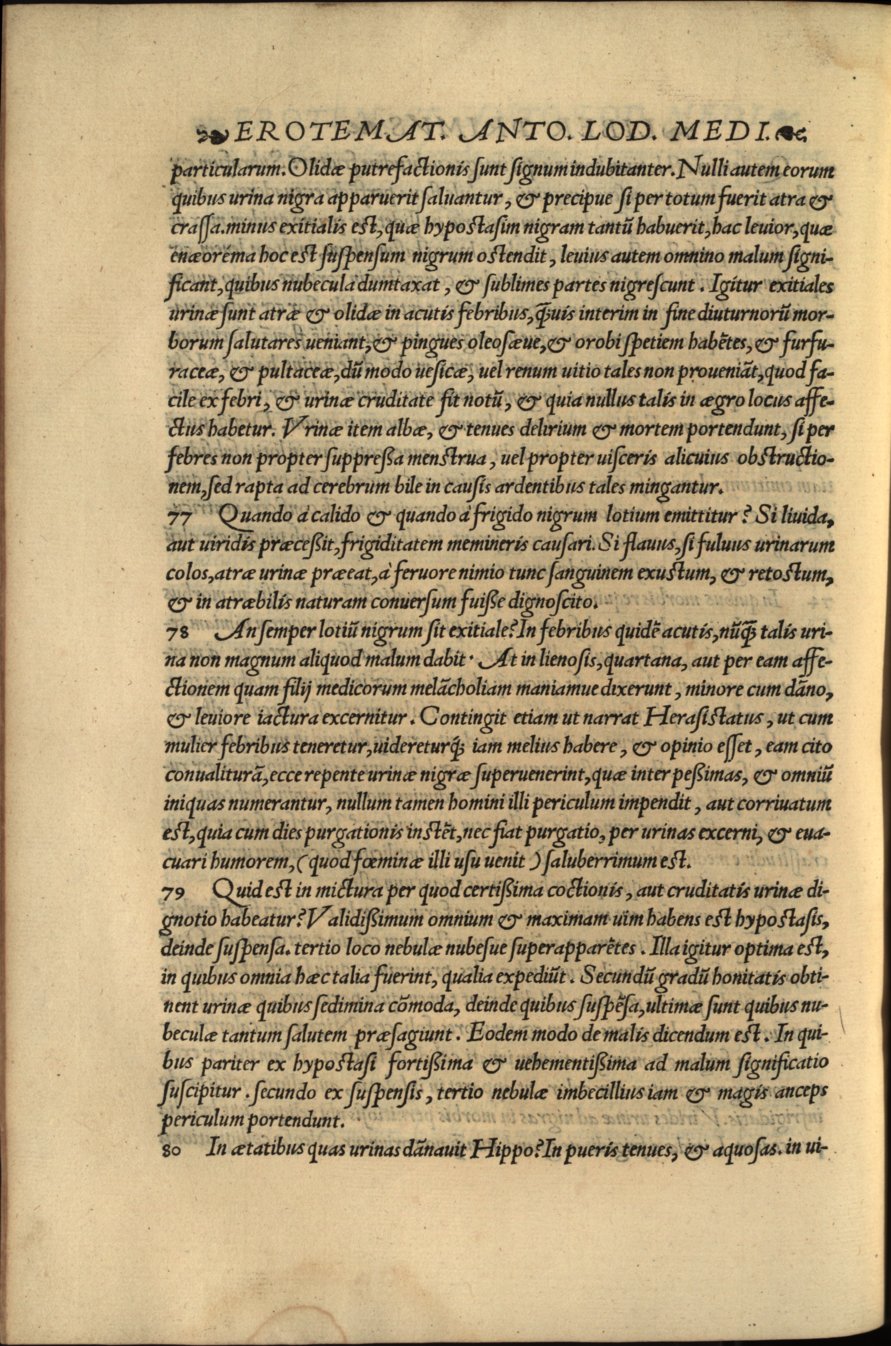 EROTEMAT. ANTO. LOD. MEDI.
particularum. Olidæ putrefactionis sunt signum indubitanter. Nulli autem eorum
quibus urina nigra apparuerit saluantur, & precipue si per totum fuerit atra &
crassa. minus exitialis est, quæ hypostasim nigram tantũ habuerit, hac leuior, quæ
enæoréma hoc est suspensum nigrum ostendit, leuius autem omnino malum signi-
ficant, quibus nubecula dumtaxat, & sublimes partes nigrescunt. Igitur exitiales
urinæ sunt atræ & olidæ in acutis febribus, ꝙ̃uis interim in fine diuturnorũ mor-
borum salutares ueniant, & pingues oleosæue, & orobi spetiem habẽtes, & furfu-
raceæ, & pultaceæ, dũ modo uesicæ, uel renum uitio tales non proueniãt, quod fa-
cile ex febri, & urinæ cruditate fit notũ, & quia nullus talis in ægro locus affe-
ctus habetur. Vrinæ item albæ, & tenues delirium & mortem portendunt, si per
febres non propter suppreßa menstrua, uel propter uisceris alicuius obstructio-
nem, sed rapta ad cerebrum bile in causis ardentibus tales mingantur.
77 Quando à calido & quando à frigido nigrum lotium emittitur? Si liuida,
aut uiridis præceßit, frigiditatem memineris causari. Si flauus, si fuluus urinarum
colos, atræ urinæ præeat, à feruore nimio tunc sanguinem exustum, & retostum,
& in atræbilis naturam conuersum fuiße dignoscito.
78 An semper lotiũ nigrum sit exitiale? In febribus quidẽ acutis, nũꝙ̃ talis uri-
na non magnum aliquod malum dabit. At in lienosis, quartana, aut per eam affe-
ctionem quam filij medicorum melãcholiam maniamue dixerunt, minore cum dãno,
& leuiore iactura excernitur. Contingit etiam ut narrat Herasistatus, ut cum
mulier febribus teneretur, uideretur&#xA757; iam melius habere, & opinio esset, eam cito
conualiturã, ecce repente urinæ nigræ superuenerint, quæ inter peßimas, & omniũ
iniquas numerantur, nullum tamen homini illi periculum impendit, aut corriuatum
est, quia cum dies purgationis instẽt, nec fiat purgatio, per urinas excerni, & eua-
cuari humorem, (quod fœminæ illi usu uenit) saluberrimum est.
79 Quid est in mictura per quod certißima coctionis, aut cruditatis urinæ di-
gnotio habeatur? Validißimum omnium & maximam uim habens est hypostasis,
deinde suspensa. tertio loco nebulæ nubesue superapparẽtes. Illa igitur optima est,
in quibus omnia hæc talia fuerint, qualia expediũt. Secundũ gradũ bonitatis obti-
nent urinæ quibus sedimina cõmoda, deinde quibus suspẽsa, ultimæ sunt quibus nu-
beculæ tantum salutem præsagiunt. Eodem modo de malis dicendum est. In qui-
bus pariter ex hypostasi fortißima & uehementißima ad malum significatio
suscipitur. secundo ex suspensis, tertio nebulæ imbecillius iam & magis anceps
periculum portendunt.
80 In ætatibus quas urinas dãnauit Hippo? In pueris tenues, & aquosas. in ui-